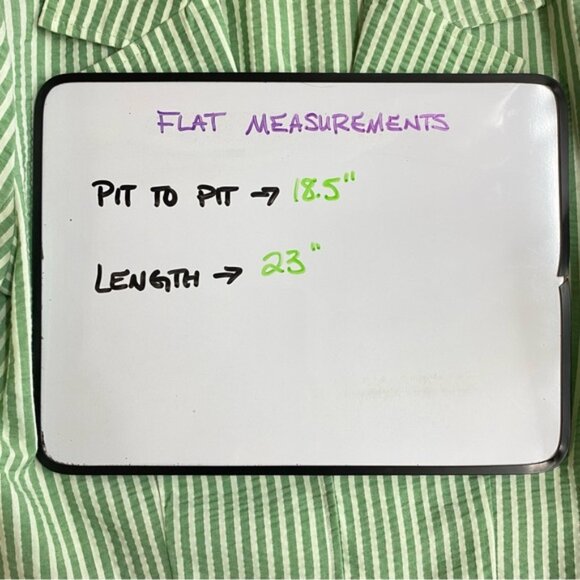 FLAT MEASUREMENTS
PIT TO PIT → 18.5"
LENGTH → 23"